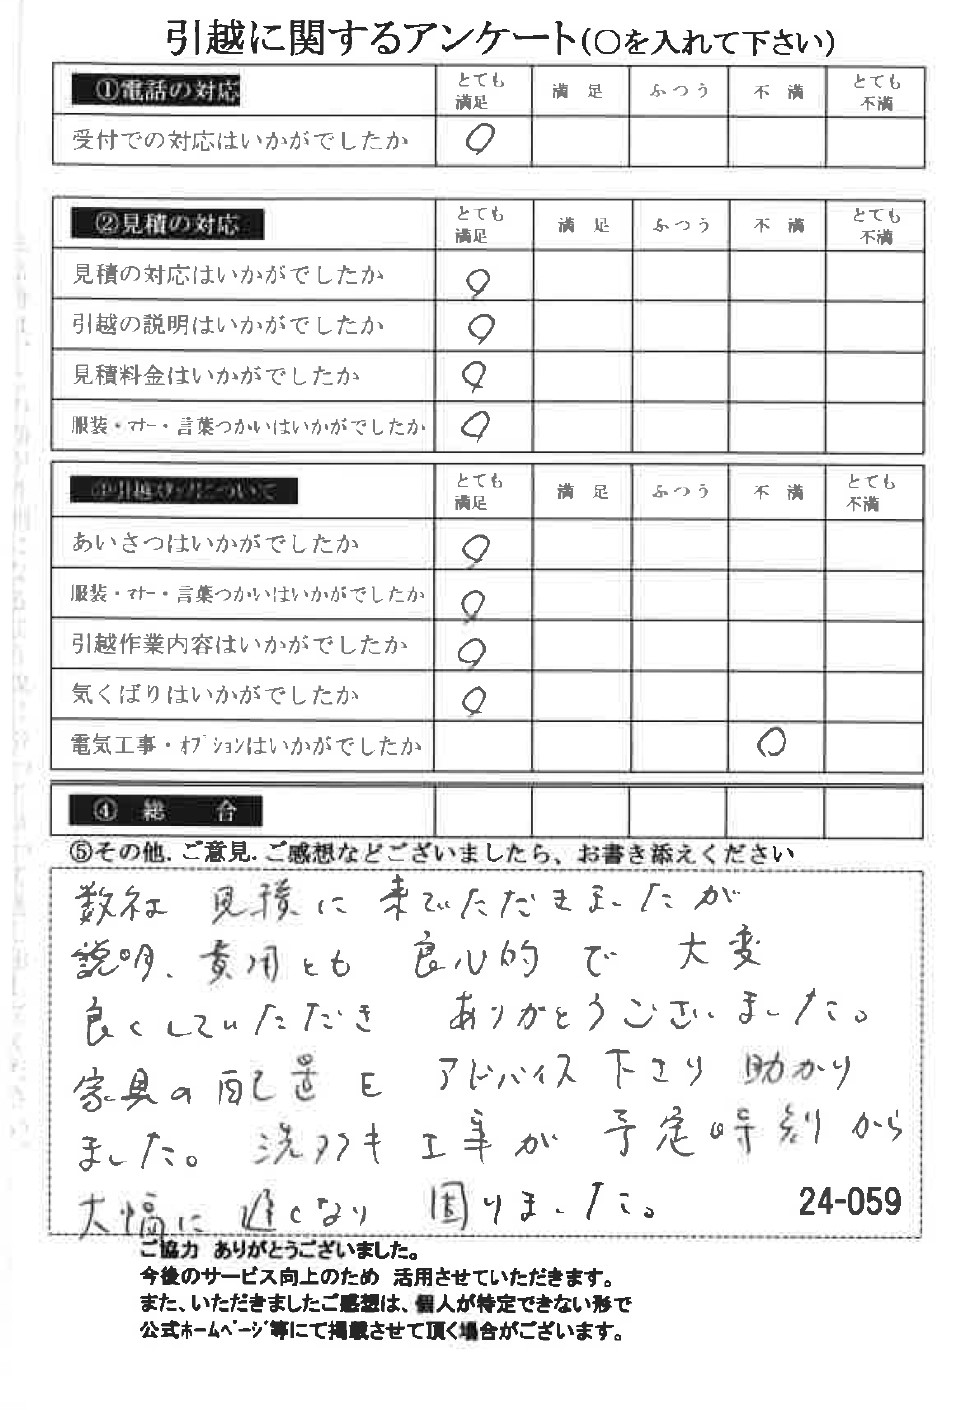 引越に関するアンケート(○を入れて下さい)
①電話の対応 とても満足 満足 ふつう 不満 とても不満
受付での対応はいかがでしたか ○
②見積の対応 とても満足 満足 ふつう 不満 とても不満
見積の対応はいかがでしたか ○
引越の説明はいかがでしたか ○
見積料金はいかがでしたか ○
服装・マナー・言葉つかいはいかがでしたか ○
③引越スタッフについて とても満足 満足 ふつう 不満 とても不満
あいさつはいかがでしたか ○
服装・マナー・言葉つかいはいかがでしたか ○
引越作業内容はいかがでしたか ○
気くばりはいかがでしたか ○
電気工事・オプションはいかがでしたか ○
④ 総 合
⑤その他．ご意見．ご感想などございましたら、お書き添えください
数社 見積に 来ていただきましたが
説明、費用とも 良心的で 大変
良くしていただき ありがとうございました。
家具の配置を アドバイス下さり 助かり
ました。洗タクキ工事が 予定時刻から
大幅に 遅くなり 困りました。
24-059
ご協力 ありがとうございました。
今後のサービス向上のため 活用させていただきます。
また、いただきましたご感想は、個人が特定できない形で
公式ホームページ等にて掲載させて頂く場合がございます。